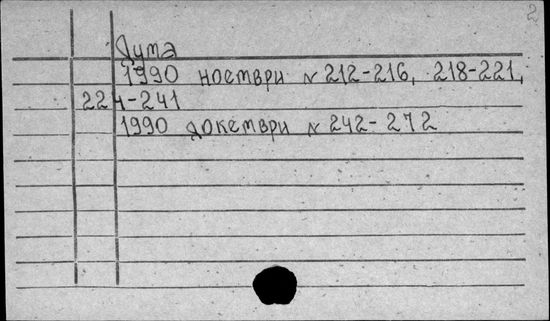 2
Дума
1990 ноември № 212-216, 218-221,
224-241
1990 декември № 242-272